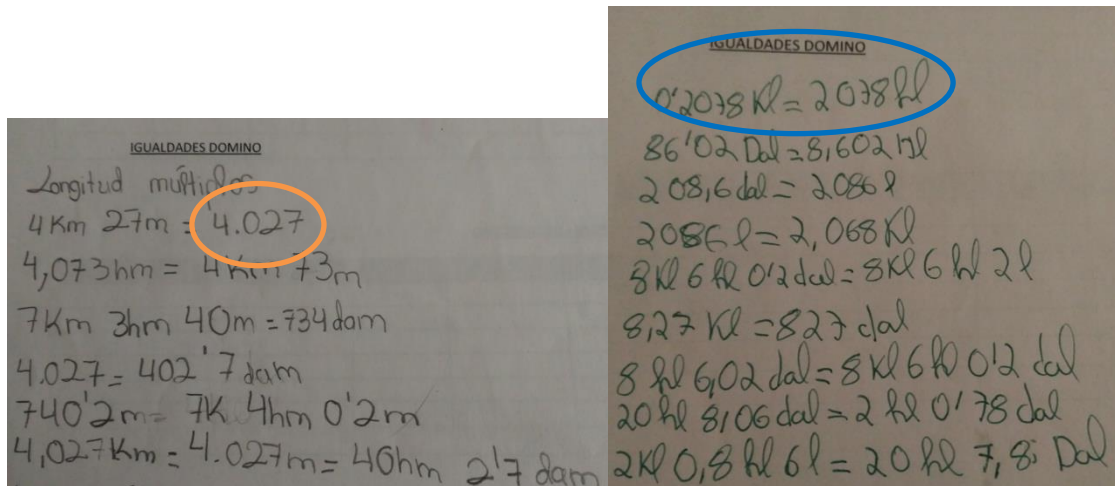 IGUALDADES DOMINO
Longitud múltiplos
4 Km 27m = 4.027
4,073hm = 4Km 73m
7Km 3hm 40m = 734dam
4.027 = 402'7 dam
740'2m = 7K 4hm 0'2m
4,027Km = 4.027m = 40hm 2'7 dam
IGUALDADES DOMINO
0'2078 Kl = 2078 hl
86'02 Dal = 8,602 hl
208,6 dal = 2086 l
2086 l = 2,068 Kl
8Kl 6 hl 0'2 dal = 8Kl 6 hl 2 l
8,27 Kl = 827 dal
8 hl 6,02 dal = 8 Kl 6 hl 0'2 dal
20 hl 8,06 dal = 2 hl 0'78 dal
2Kl 0,8 hl 6 l = 20 hl 7,8 Dal